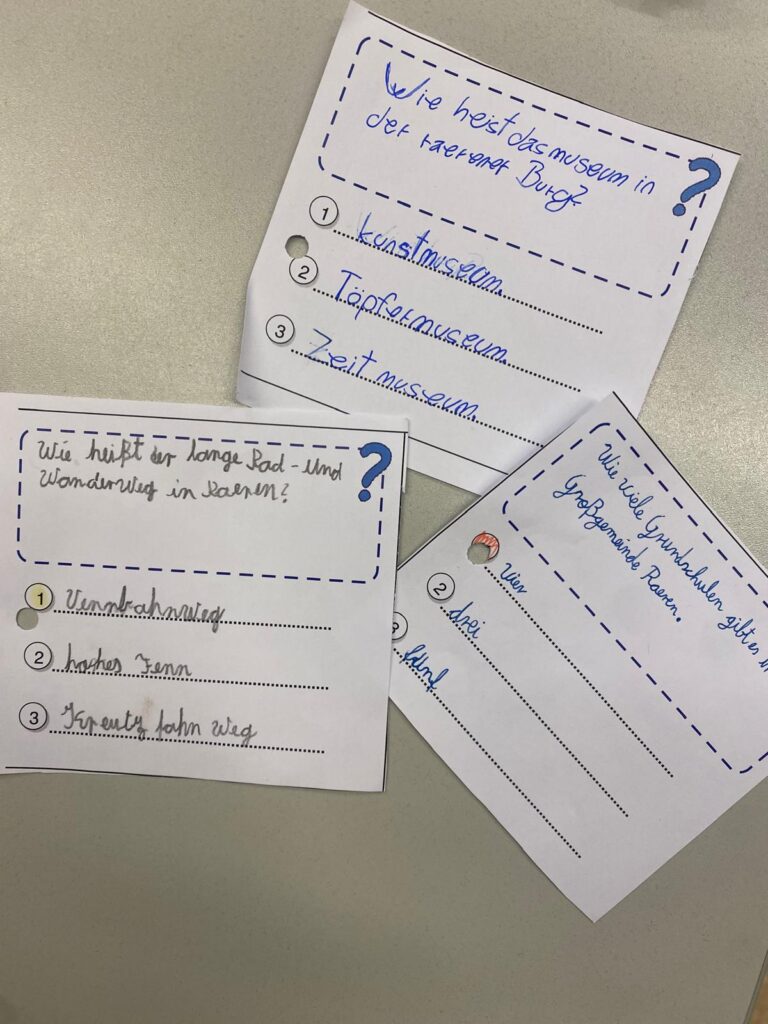 Wie heist das museum in
der raerener Burg?
?
1 kunstmuseum.
2 Töpfermuseum.
3 Zeit museum.
Wie heißt der lange Rad- und
Wanderweg in Raeren?
?
1 Vennbahnweg
2 hohes Fenn
3 Kreutz fahn Weg
Wie viele Grundschulen gibt es in
Großgemeinde Raeren.
vier
2 drei
3 fünf